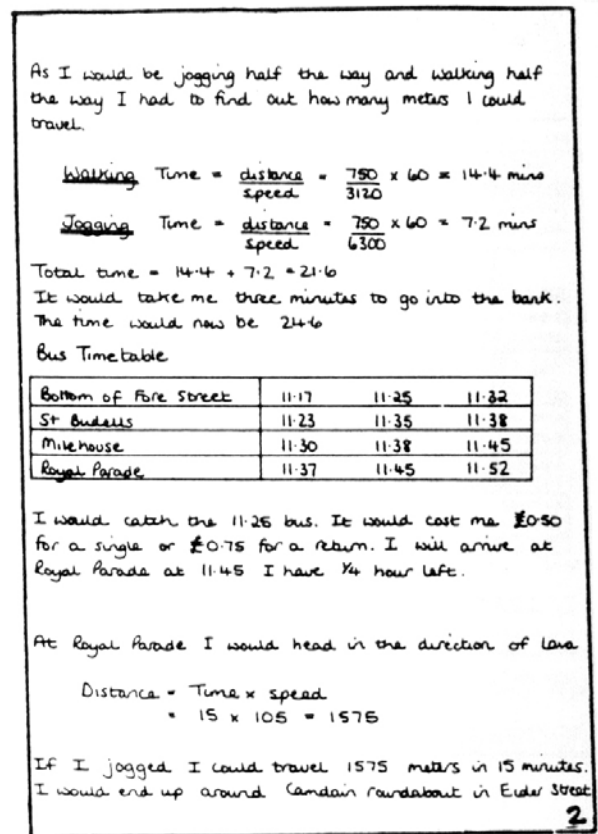 As I would be jogging half the way and walking half
the way I had to find out how many meters I could
travel.
Walking Time = distance/speed = 750/3120 x 60 = 14.4 mins
Jogging Time = distance/speed = 750/6300 x 60 = 7.2 mins
Total time = 14.4 + 7.2 = 21.6
It would take me three minutes to go into the bank.
The time would now be 24.6
Bus Timetable
Bottom of Fore Street 11.17 11.25 11.32
St Budeaus 11.23 11.35 11.38
Milehouse 11.30 11.38 11.45
Royal Parade 11.37 11.45 11.52
I would catch the 11.25 bus. It would cost me £0.50
for a single or £0.75 for a return. I will arrive at
Royal Parade at 11.45 I have 1/4 hour left.
At Royal Parade I would head in the direction of
Distance = Time x speed
= 15 x 105 = 1575
If I jogged I could travel 1575 meters in 15 minutes.
I would end up around roundabout in Street
2